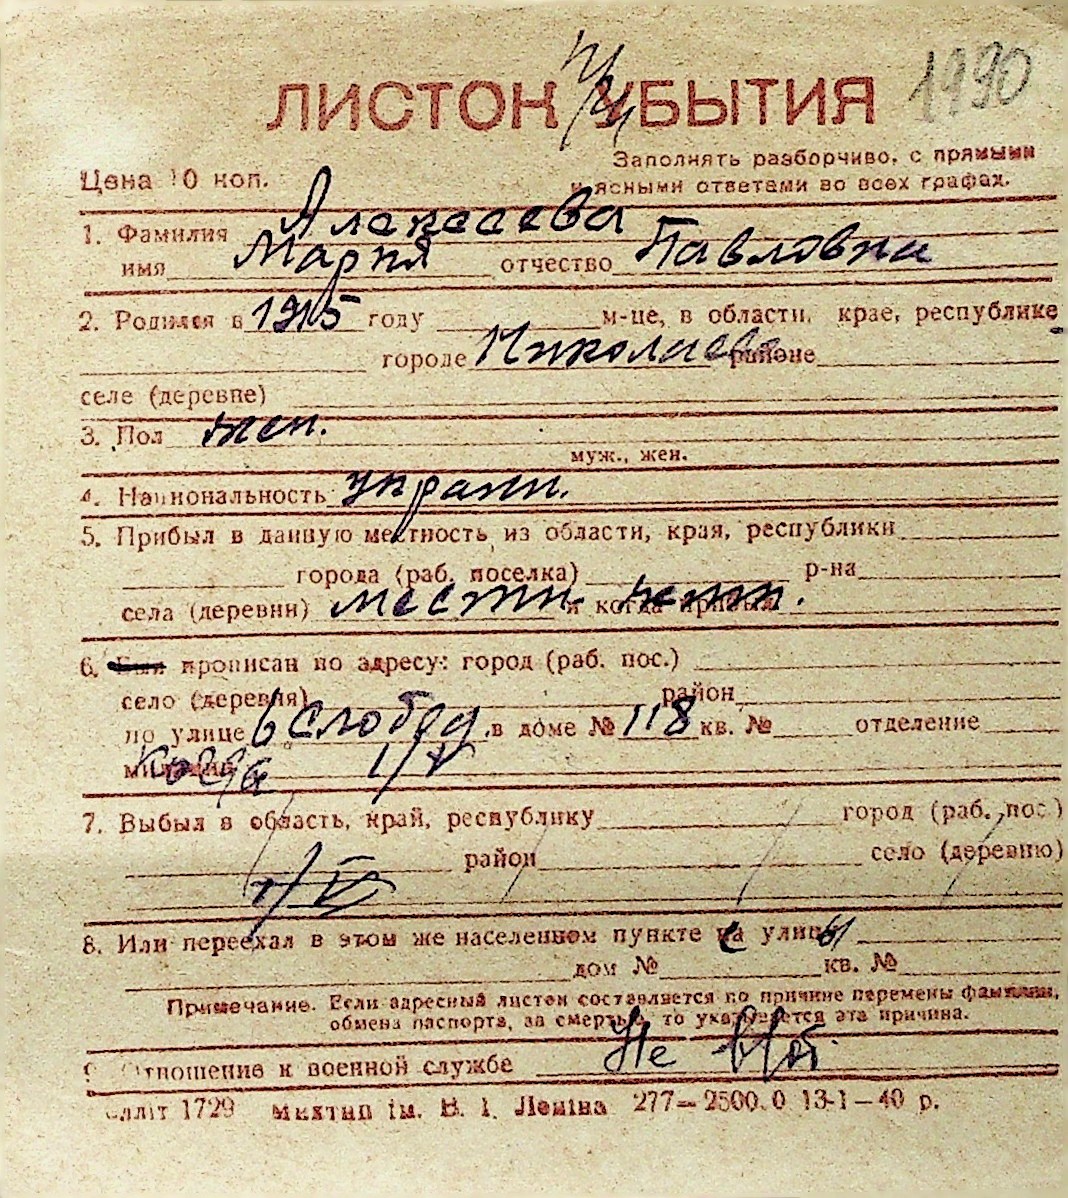 1990
ЛИСТОК УБЫТИЯ
Цена 10 коп.
Заполнять разборчиво, с прямыми
и ясными ответами во всех графах.
1. Фамилия Алексеева
имя Мария отчество Павловна
2. Родился в 1915 году м-це, в области, крае, республике
городе Николаеве районе
селе (деревне)
3. Пол жен.
муж., жен.
4. Национальность украин.
5. Прибыл в данную местность из области, края, республики
города (раб. поселка) р-на
села (деревни) местн. и когда прибыл
6. Был прописан по адресу: город (раб. пос.)
село (деревня) район
по улице 6 Слобод. в доме № 118 кв. № отделение
милиции
7. Выбыл в область, край, республику город (раб. пос.)
район село (деревню)
8. Или переехал в этом же населенном пункте с улицы
дом № кв. №
Примечание. Если адресный листок составляется по причине перемены фамилии,
обмена паспорта, за смертью, то указывается эта причина.
9. Отношение к военной службе Не в/об.
лліт 1729 Миктип ім. В. І. Леніна 277—2500.0 13-1—40 р.